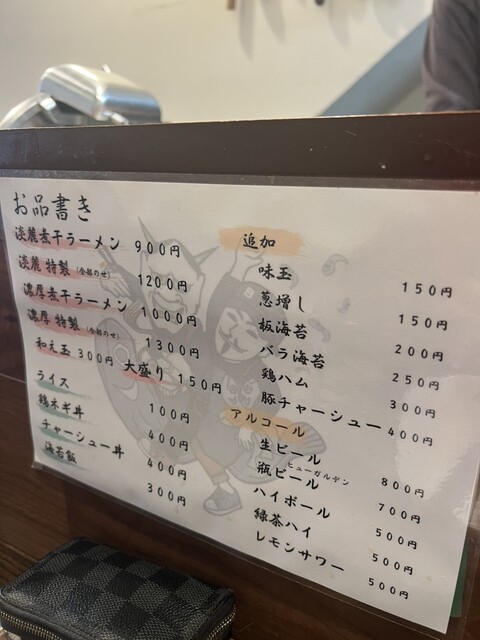 お品書き
淡麗煮干ラーメン 900円
淡麗 特製(全部のせ) 1200円
濃厚煮干ラーメン 1000円
濃厚 特製(全部のせ) 1300円
和え玉 300円 大盛り 150円
ライス 100円
鶏ネギ丼 400円
チャーシュー丼 400円
海苔飯 300円
追加
味玉 150円
葱増し 150円
板海苔 200円
バラ海苔 250円
鶏ハム 300円
豚チャーシュー 400円
アルコール
生ビール 800円
ヒューガルデン
瓶ビール 700円
ハイボール 500円
緑茶ハイ 500円
レモンサワー 500円